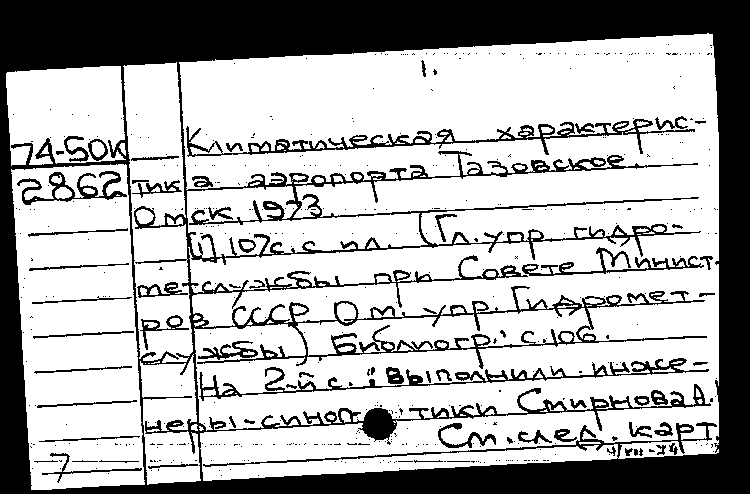 1.
74-50к
2862
Климатическая характерис-
тика аэропорта Тазовское.
Омск, 1973.
[1], 107с. с ил. (Гл. упр. гидро-
метслужбы при Совете Минист-
ров СССР Ом. упр. Гидромет-
службы). Библиогр.: с. 106.
На 2-й с.: Выполнили инже-
неры-синоптики Смирнова А.
См. след. карт.
7